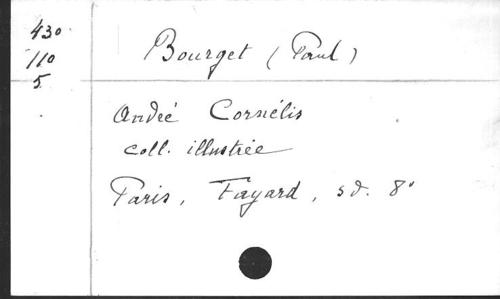 430
110
5
Bourget (Paul)
André Cornélis
coll. illustrée
Paris, Fayard, sd. 8°